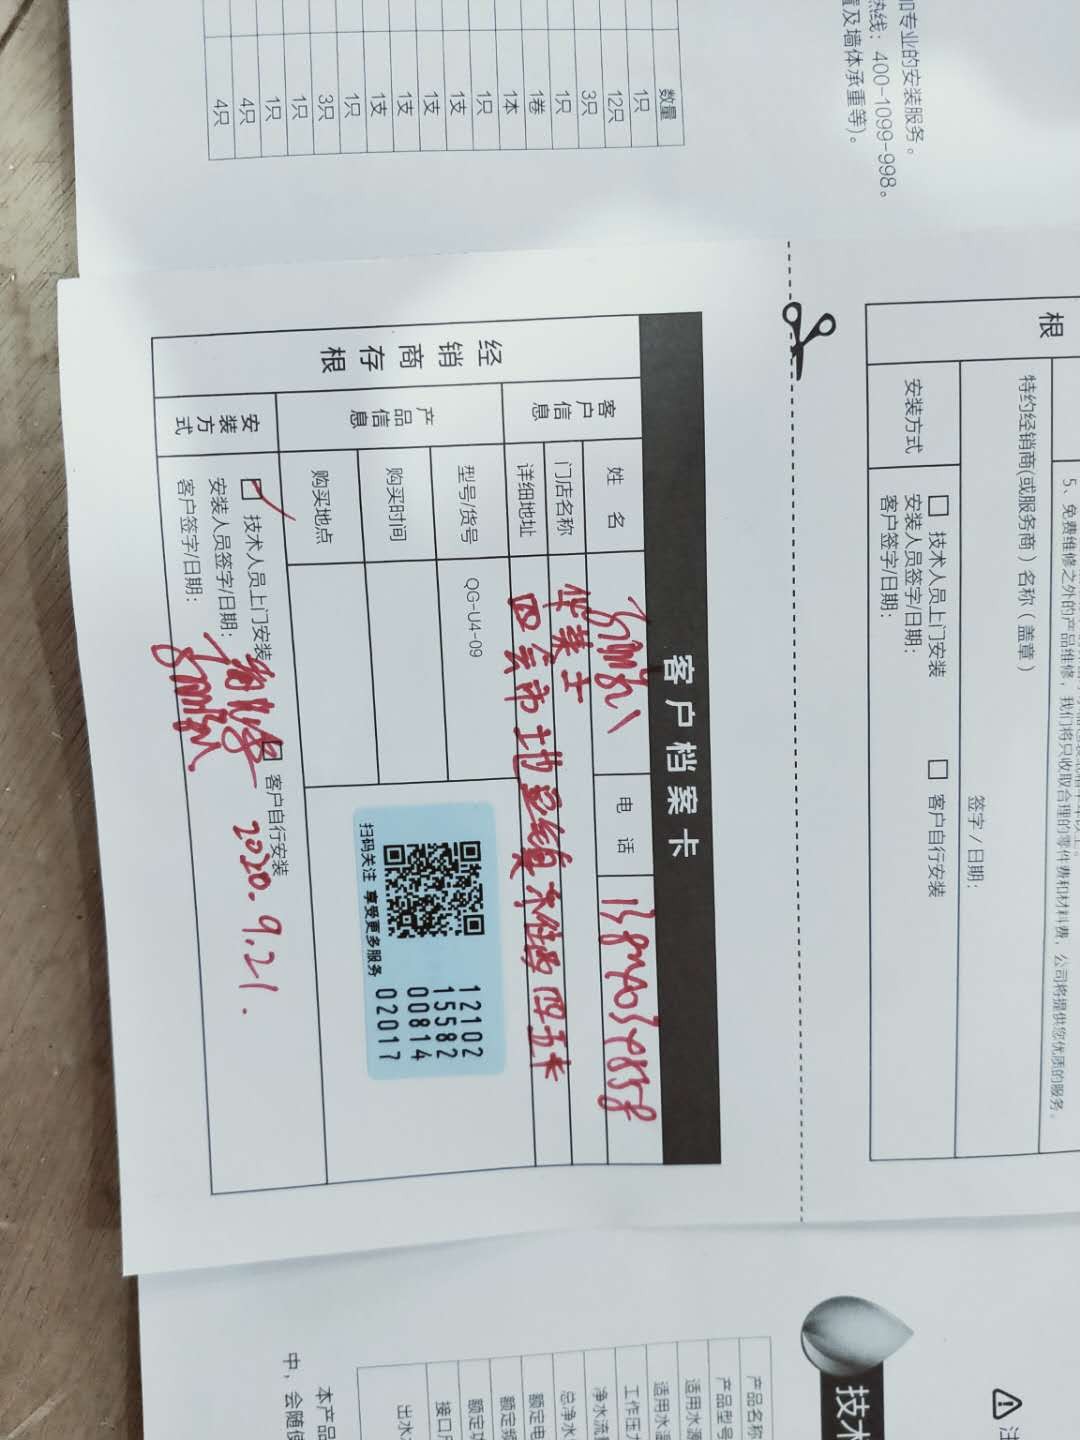 和专业的安装服务。
热线：400-1099-998。
置及墙体承重等)。
数量
1只
12只
3只
1只
1卷
1本
1只
1支
1支
1支
1支
1只
3只
1只
1只
4只
4只
根
5、免费维修之外的产品维修，我们将只收取合理的零件费和材料费，公司将提供您优质的服务。
特约经销商(或服务商)名称(盖章)
签字/日期:
安装方式
技术人员上门安装
客户自行安装
安装人员签字/日期:
客户签字/日期:
客户档案卡
经销商存根
客户信息
姓名
电话
门店名称
华莱士
详细地址
四会市地豆镇
产品信息
型号/货号
QG-U4-09
购买时间
购买地点
扫码关注 享受更多服务
12102
15582
00814
02017
安装方式
技术人员上门安装
客户自行安装
安装人员签字/日期:
2020.9.21.
客户签字/日期:
技术
产品名称
产品型号
适用水源
适用水温
工作压力
净水流量
总净水
额定电
额定频
额定功
接口尺
出水
本产品
中，会随使